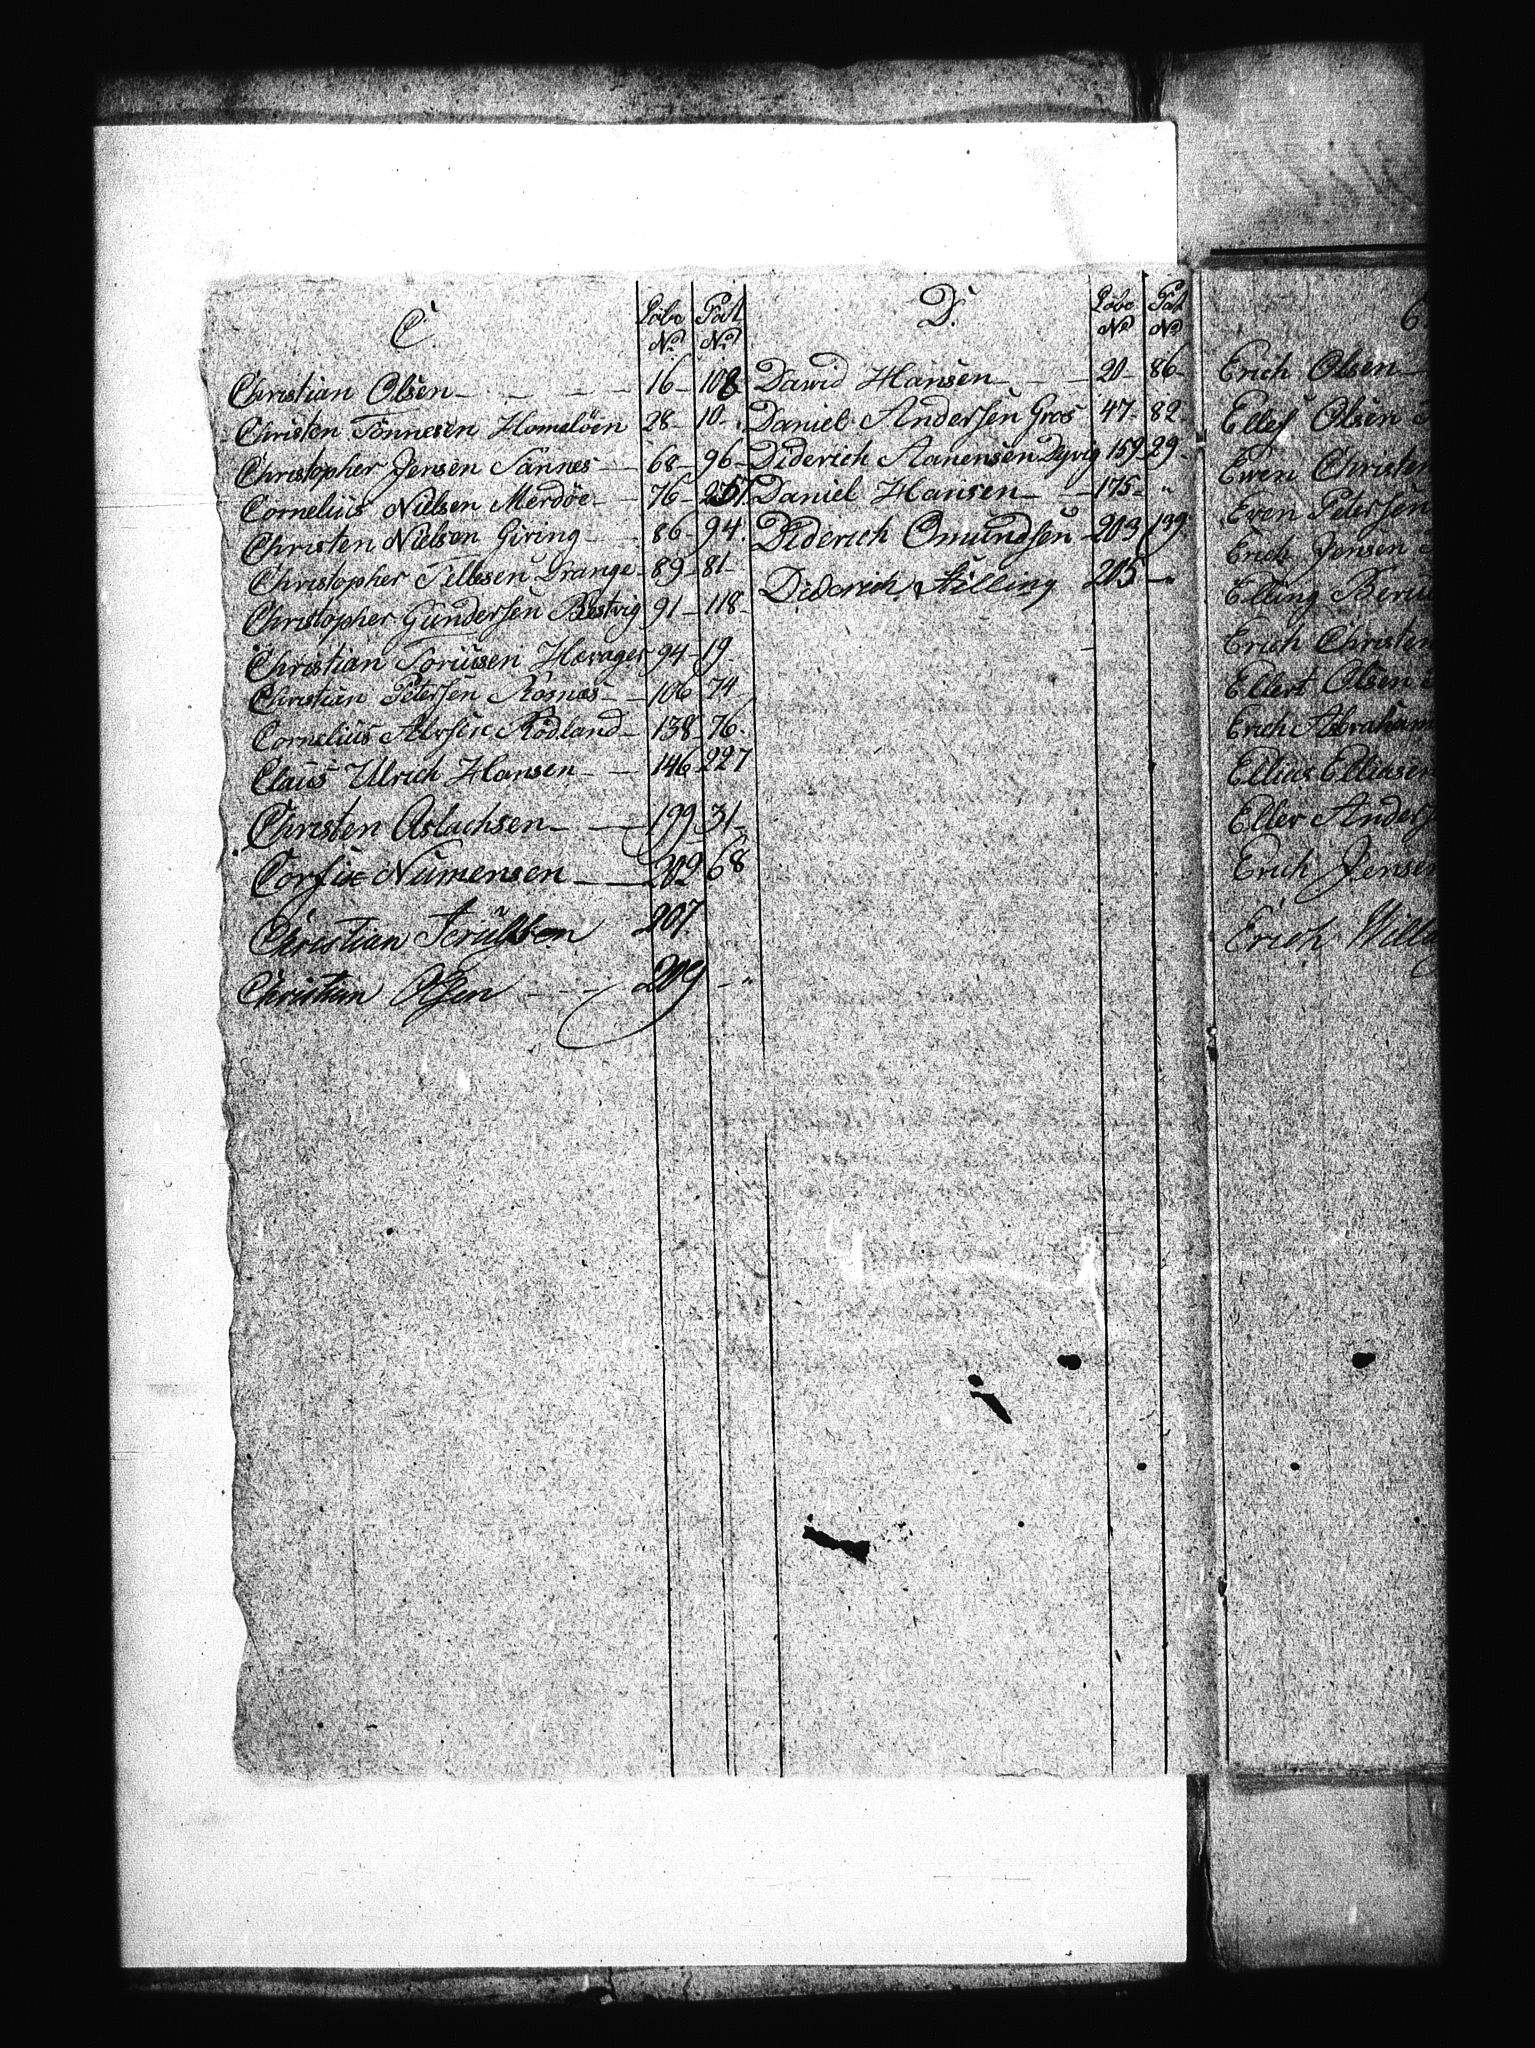 C. Löbe No. Pat. No.
Christian Olsen 16 108
Christen Tönnesen Homslöen 28 10
Christopher Jensen Sannes 68 96
Cornelius Nielsen Merdöe 76
Christen Nielsen Giving 86 94
Christopher Tellesen Drange 89 81
Christopher Gundersen 91 118
Christian Torüsen Havager 94 19
Christian Petersen Rosnæs 106 74
Cornelius Rödland 138 76
Claus Ulrich Hansen 146 227
Christen Aslachsen 199 31
Corfix Numensen 202 68
Christian 207
Christian Olsen 209 — "
D. Löbe No. Pat. No.
David Hansen 20 86
Daniel Andersen Gros 47 82
Diderich Aanensen Dyvig 159 29
Daniel Hansen 175 "
Diderich Omundsen 203 139
Diderich Stilling 205 — "
Erich Olsen
Ellef Olsen
Even Christen
Even Petersen
Erich Jensen
Elling
Erich Christen
Ellert Olsen
Erich Abraham
Ellius Elliasen
Eller Anders
Erich Jensen
Erich Will